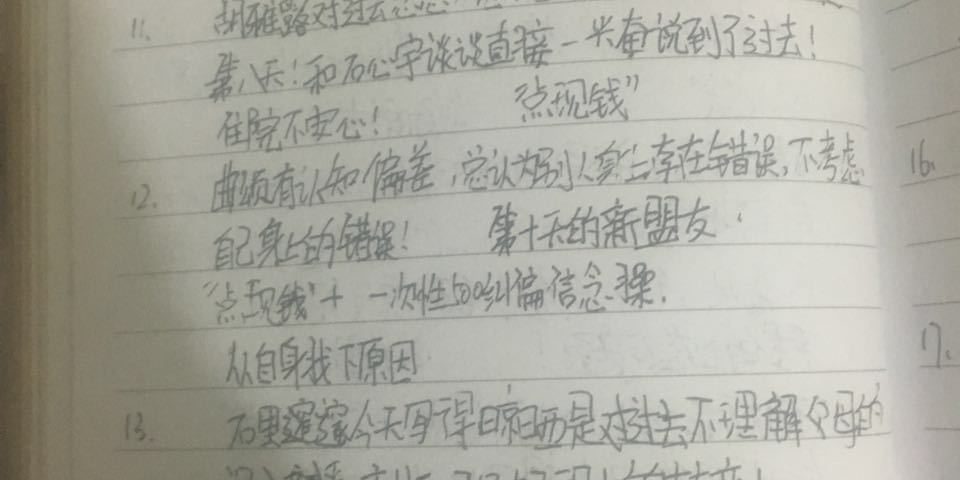 11.
胡雅路对过去
第八天!和石心宇谈谈直接一米奋说到了过去!
住院不安心! “点现钱”
12. 曲颂有认知偏差,总认为别人身上存在错误,不考虑
自己身上的错误! 第十天的新盟友.
“点现钱”+ 一次性500纠偏信念操.
从自身找下原因
13. 今天写得 是对过去不理解父母的
16.
17.